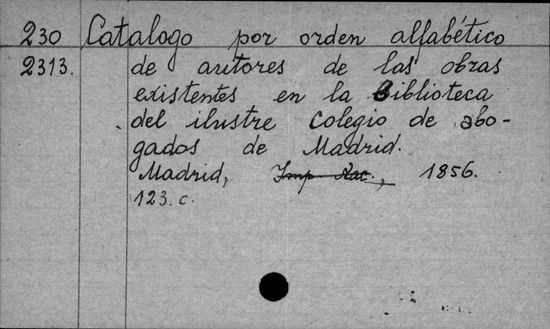 230 Catalogo por orden alfabético
2313. de autores de las obras
existentes en la Biblioteca
del ilustre Colegio de abo-
gados de Madrid.
Madrid, Imp Nac., 1856.
123. c.